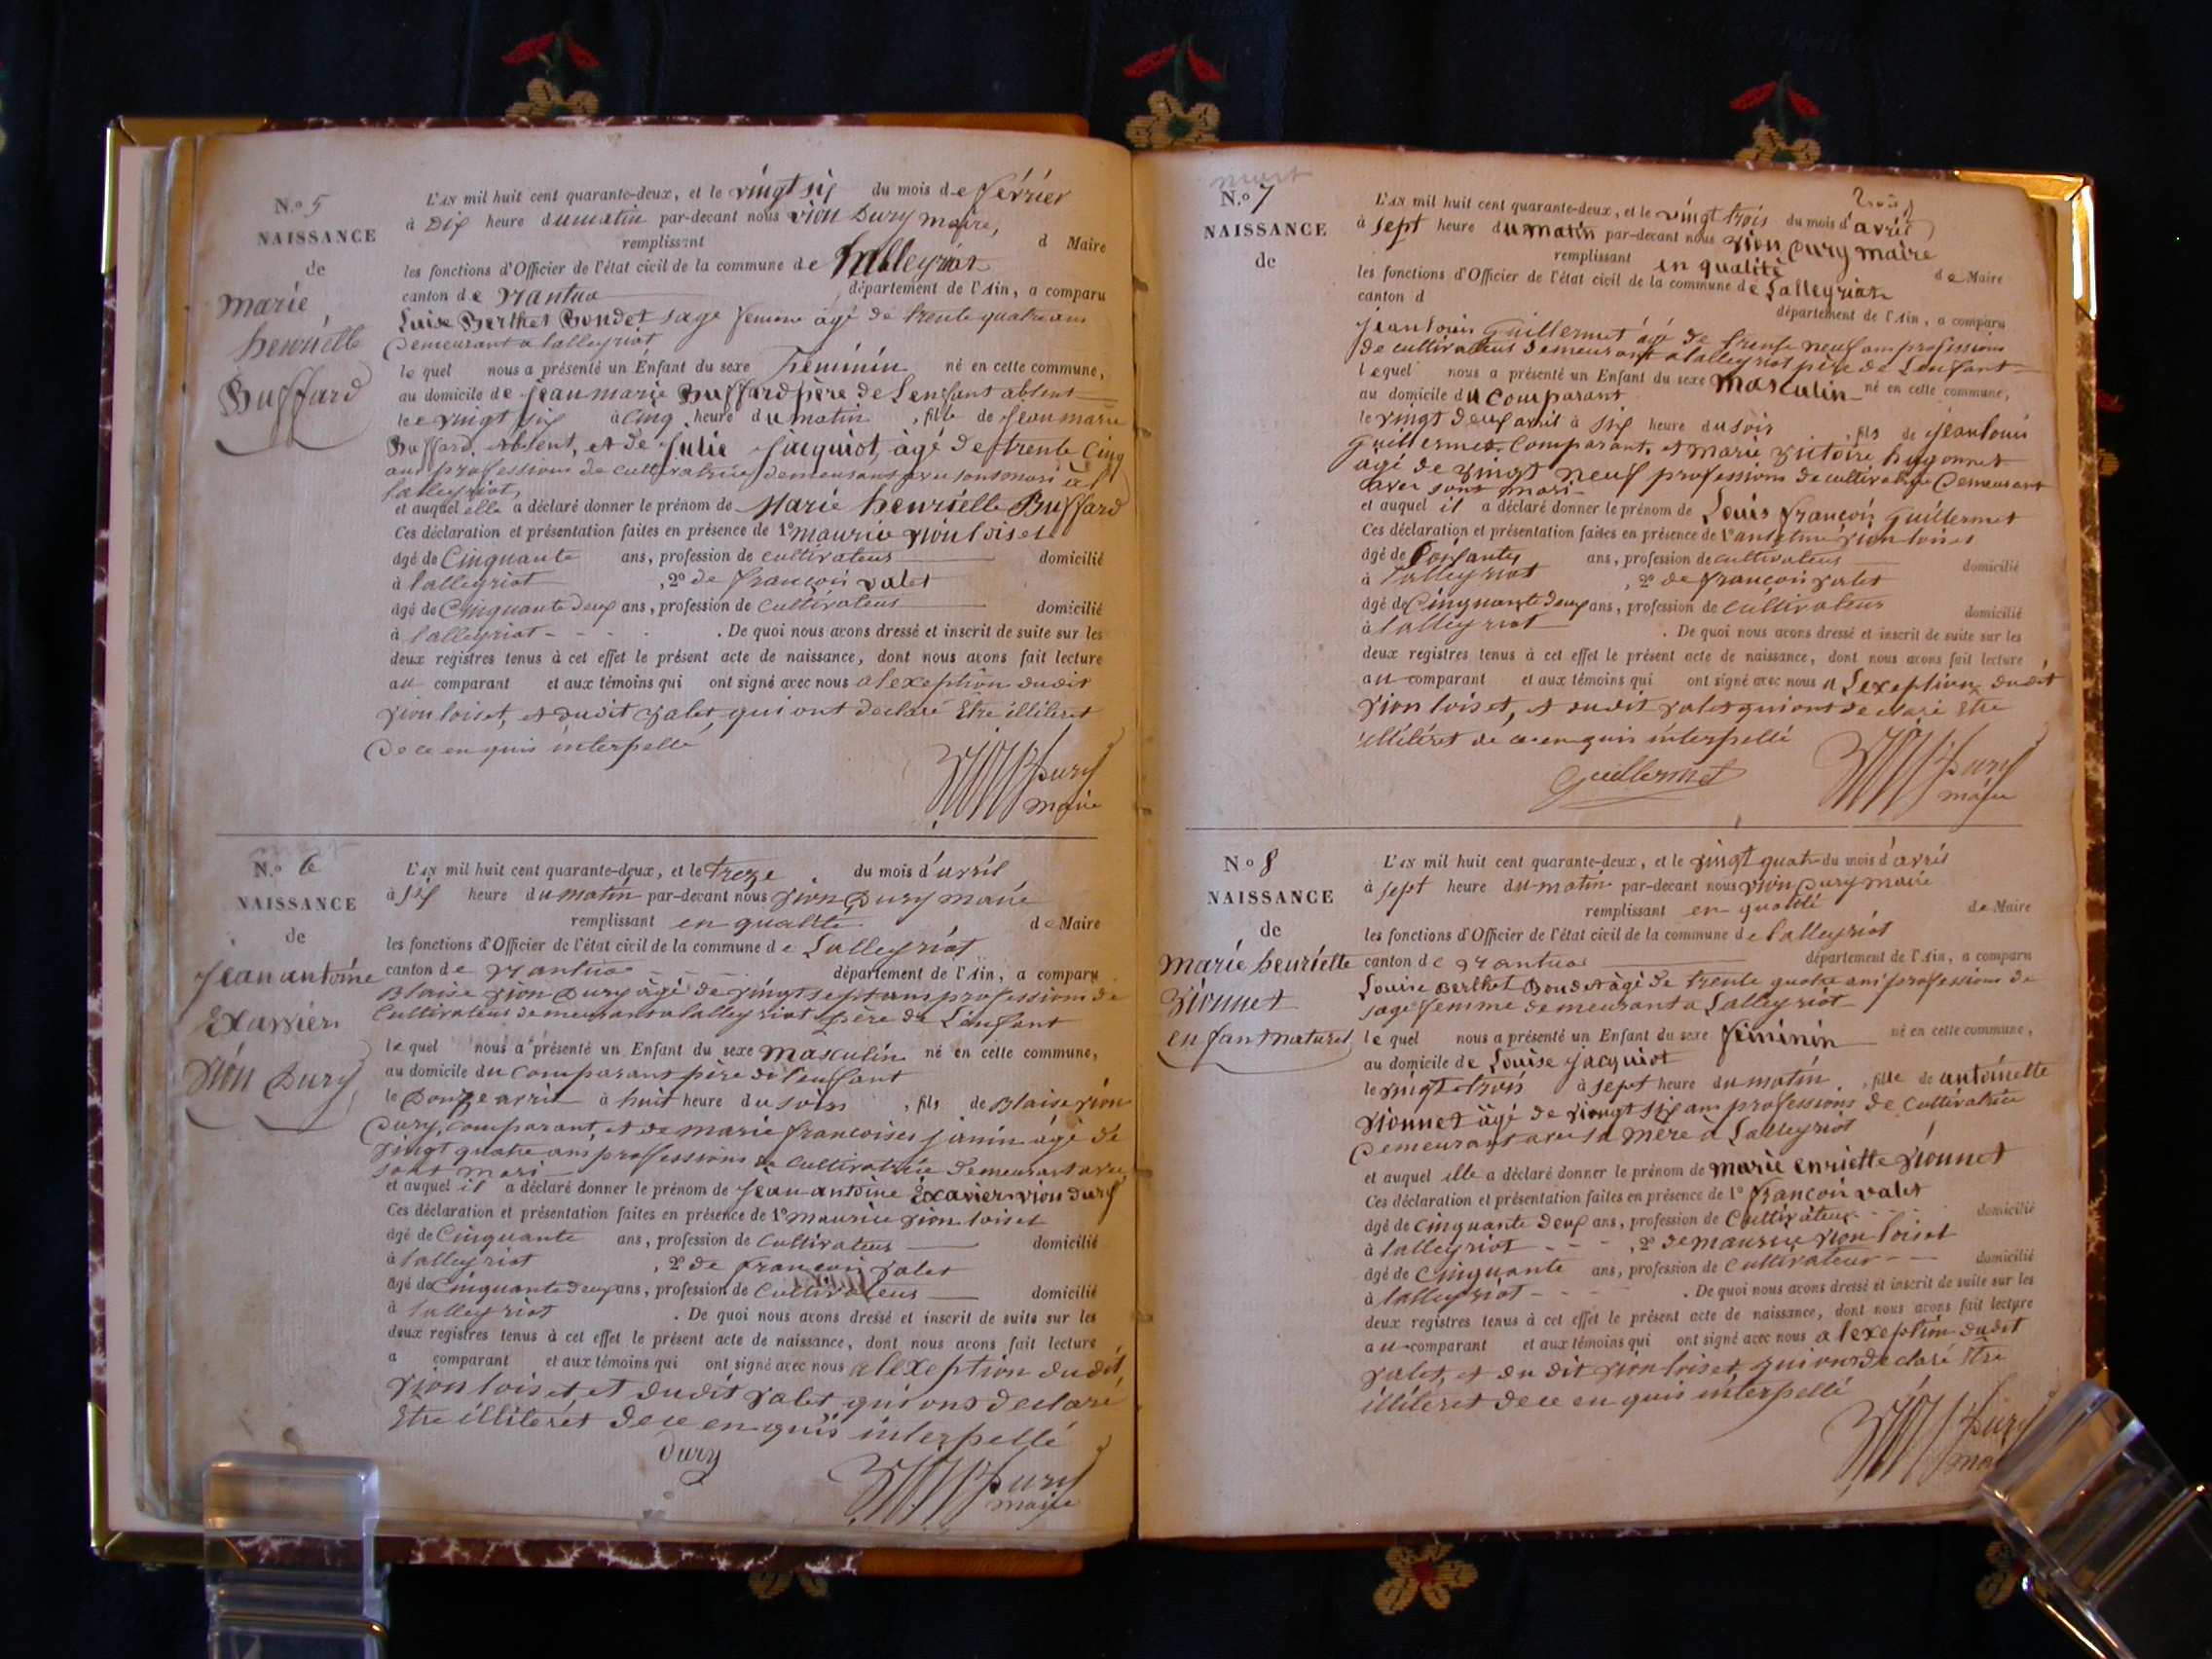 N.º 5
NAISSANCE
de
Marie
henriette
Buffard
L'AN mil huit cent quarante-deux, et le vingt six du mois de février
à Dix heure du matin par-devant nous vion Dury maire,
remplissant d Maire
les fonctions d'Officier de l'état civil de la commune de Lalleyriat
canton de Nantua département de l'Ain, a comparu
Luise Berthet Bondet sage femme âgé de trente quatre ans
Demeurant a lalleyriat
le quel nous a présenté un Enfant du sexe féminin né en cette commune,
au domicile de jean marie Buffard père de Lenfant absent
le vingt six à cinq heure du matin, fille de jean marie
Buffard, absent, et de julie jacquiot, âgé de trente cinq
ans professions de cultivatrice demeurant avec sont mari à
lalleyriat,
et auquel elle a déclaré donner le prénom de Marie henriette Buffard
Ces déclaration et présentation faites en présence de 1º maurice vion loiset
âgé de Cinquante ans, profession de cultivateur domicilié
à lalleyriat, 2º de françois valet
âgé de Cinquante deux ans, profession de cultivateur domicilié
à lalleyriat - - - . De quoi nous avons dressé et inscrit de suite sur les
deux registres tenus à cet effet le présent acte de naissance, dont nous avons fait lecture
au comparant et aux témoins qui ont signé avec nous a lexeption dudit
vion loiset, et dudit valet qui ont declaré Etre illiteret
De ce en quis interpellé
Dury
maire
N.º 6
NAISSANCE
de
jean antoine
Exavier
vion Dury
L'AN mil huit cent quarante-deux, et le treze du mois d'avril
à six heure du matin par-devant nous vion Dury maire
remplissant en qualité de Maire
les fonctions d'Officier de l'état civil de la commune de Lalleyriat
canton de Nantua département de l'Ain, a comparu
Blaise vion Dury âgé de vingt sept ans professions de
Cultivateur demeurant a lalleyriat père de L'enfant
le quel nous a présenté un Enfant du sexe masculin né en cette commune,
au domicile du comparant père de l'enfant
le Douze avril à huit heure du soir, fils de Blaise vion
Dury, comparant, et de marie françoises janin âgé de
vingt quatre ans professions de cultivatrice demeurant avec
sont mari
et auquel il a déclaré donner le prénom de jean antoine Exavier vion dury
Ces déclaration et présentation faites en présence de 1º maurice vion loiset
âgé de Cinquante ans, profession de Cultivateur domicilié
à lalleyriat, 2º de françois valet
âgé de Cinquante deux ans, profession de Cultivateur domicilié
à lalleyriat . De quoi nous avons dressé et inscrit de suite sur les
deux registres tenus à cet effet le présent acte de naissance, dont nous avons fait lecture
a comparant et aux témoins qui ont signé avec nous a lexeption dudit
vion loiset, et dudit valet, qui ont declaré
Etre illiterét de ce en quis interpellé
Dury
Dury
maire
mort
N.º 7
NAISSANCE
de
L'AN mil huit cent quarante-deux, et le vingt trois du mois d'avril
à sept heure du matin par-devant nous vion Dury maire
remplissant en qualité de Maire
les fonctions d'Officier de l'état civil de la commune de Lalleyriat
canton d département de l'Ain, a comparu
jean louis Guillermet âgé de trente neuf ans professions
de cultivateur demeurant a lalleyriat père de Lenfant
le quel nous a présenté un Enfant du sexe masculin né en cette commune,
au domicile du comparant
le vingt deux avril à six heure du soir, fils de jean louis
Guillermet comparant, et marie victoire hugonnet
âgé de vingt neuf professions de cultivatrice Demeurant
avec sont mari
et auquel il a déclaré donner le prénom de Louis françois Guillermet
Ces déclaration et présentation faites en présence de 1º vion loiset
âgé de ans, profession de cultivateur domicilié
à lalleyriat, 2º de françois valet
âgé de Cinquante deux ans, profession de cultivateur domicilié
à lalleyriat . De quoi nous avons dressé et inscrit de suite sur les
deux registres tenus à cet effet le présent acte de naissance, dont nous avons fait lecture
au comparant et aux témoins qui ont signé avec nous a Lexeption dudit
vion loiset, et dudit valet qui ont declaré Etre
illiteret de ce en quis interpellé
Guillermet
Dury
maire
N.º 8
NAISSANCE
de
Marie henriette
vionnet
enfant naturel
L'AN mil huit cent quarante-deux, et le vingt quatre du mois d'avril
à sept heure du matin par-devant nous vion Dury maire
remplissant en qualité de Maire
les fonctions d'Officier de l'état civil de la commune de lalleyriat
canton de Nantua département de l'Ain, a comparu
Louise Berthet Bondet âgé de trente quatre ans professions de
sage femme demeurant a Lalleyriat
le quel nous a présenté un Enfant du sexe féminin né en cette commune,
au domicile de Louise jacquiot
le vingt trois à sept heure du matin, fille de antoinette
vionnet âgé de vingt six ans professions de cultivatrice
Demeurant avec sa mère à Lalleyriat
et auquel elle a déclaré donner le prénom de marie enriette vionnet
Ces déclaration et présentation faites en présence de 1º françois valet
âgé de cinquante deux ans, profession de Cultivateur domicilié
à lalleyriat - - -, 2º de maurice vion loiset
âgé de Cinquante ans, profession de cultivateur domicilié
à lalleyriat - - - . De quoi nous avons dressé et inscrit de suite sur les
deux registres tenus à cet effet le présent acte de naissance, dont nous avons fait lecture
au comparant et aux témoins qui ont signé avec nous a lexeption dudit
valet, et du dit vion loiset, qui ont declaré Etre
illiteret de ce en quis interpellé
Dury